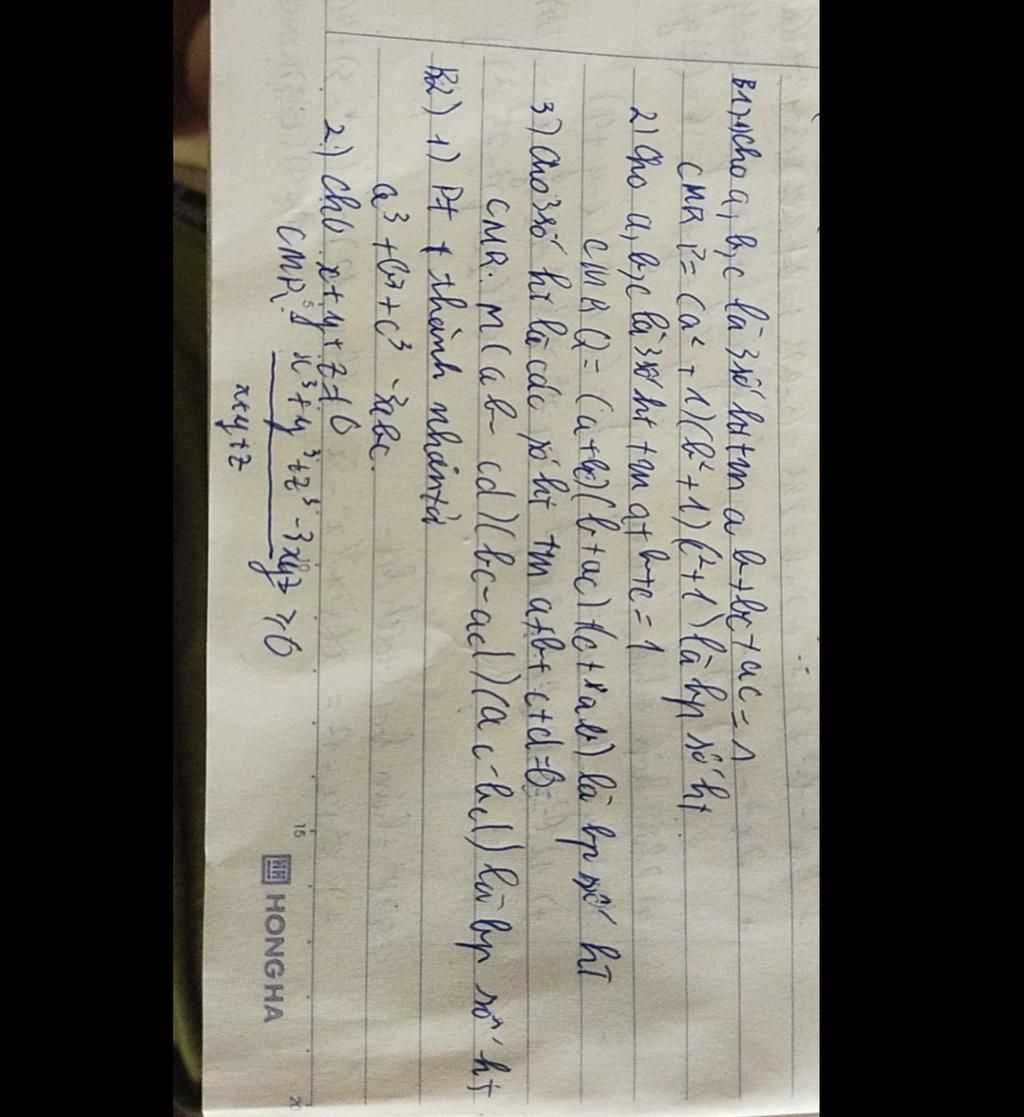 B1) 1) Cho a, b, c là 3 số ht tm ab + bc + ac = 1
CMR P = (a² + 1)(b² + 1)(c² + 1) là bp số ht
2) Cho a, b, c là 3 số ht tm a + b + c = 1
CMR Q = (a + bc)(b + ac)(c + ab) là bp số ht
3) Cho 3 số ht là các số ht tm a + b + c + d = 0
CMR: M (ab - cd)(bc - ad)(ac - bd) là bp số ht
B2) 1) Pt thành nhân tử
a³ + b³ + c³ - 3abc.
2.) Cho x + y + z ≠ 0
CMR: x³ + y³ + z³ - 3xyz ≥ 0
x + y + z
15
HONG HA
20